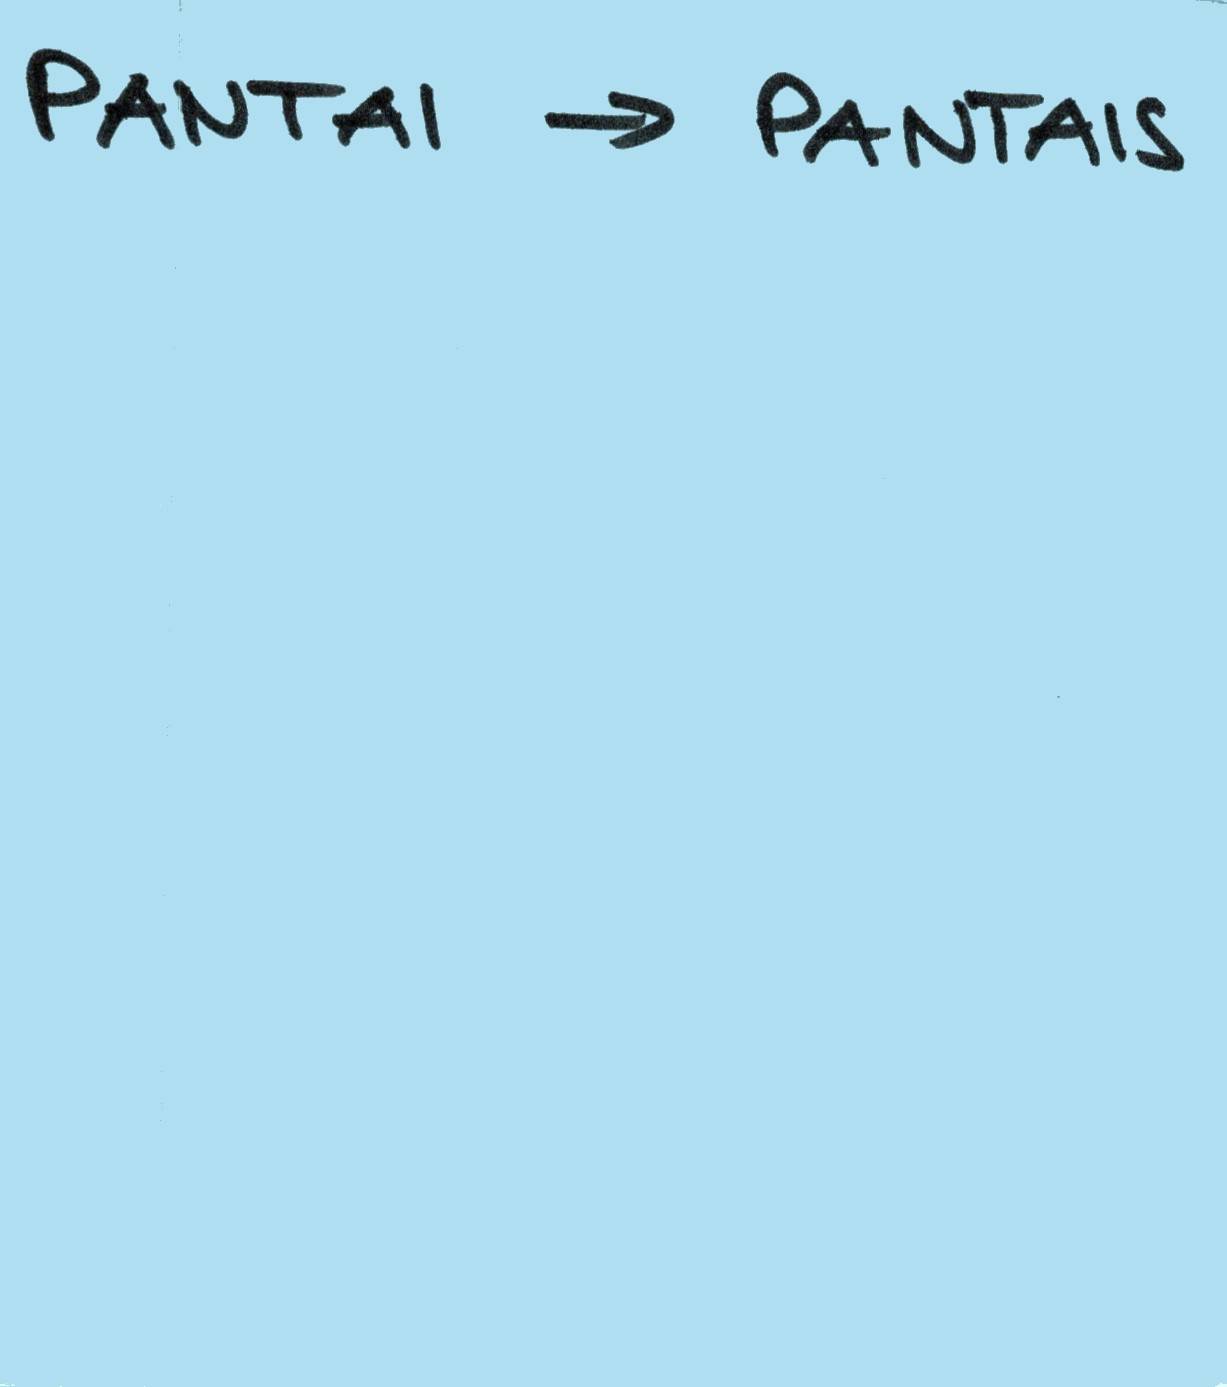 PANTAI → PANTAIS